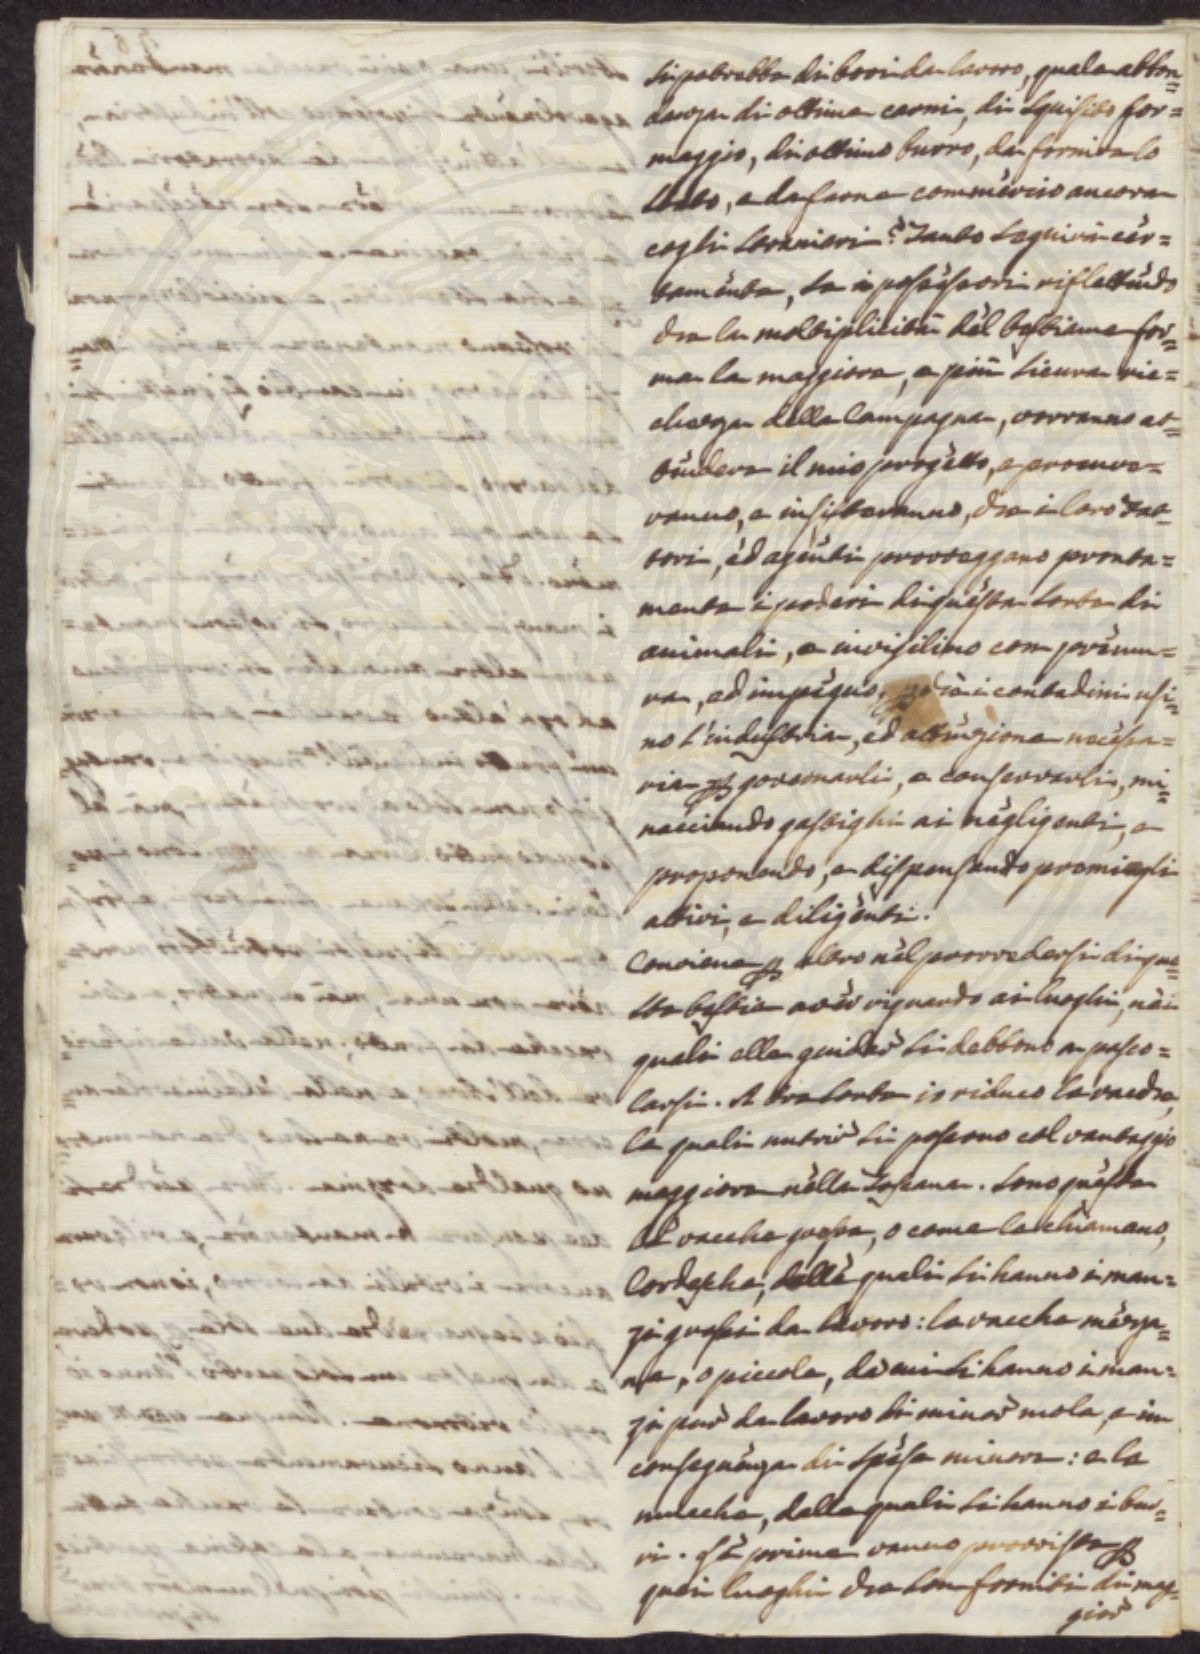 si potrebbe di bovi da lavoro, quale abbon=
danza di ottime carni, di squisito for=
maggio, di ottimo burro, da fornire lo
stato, e da farne commercio ancora
cogli stranieri? Tanto seguirà cer=
tamente, se i possessori riflettendo
che la moltiplicità del bestiame for=
ma la maggiore, e più sicura ric=
chezza della Campagna, vorranno at=
tendere il mio progetto, e procure=
ranno, e insisteranno, che i loro Fat=
tori, ed agenti provveggano pronta=
mente i poderi di questa sorte di
animali, e invigilino con premu=
ra, ed impegno, che i contadini usi=
no l'industria, ed attenzione necessa=
ria p governarli, e conservarli, mi=
nacciando gastighi ai negligenti, e
proponendo, e dispensando premi agli
attivi, e diligenti.
Conviene p altro nel provvedersi di que=
ste bestie aver riguardo ai luoghi, nei
quali elle guidar si debbono a pasco=
larsi. A tre sorte io riduco le vacche,
le quali nutrir si possono col vantaggio
maggiore nella Toscana. Sono queste
le vacche grosse, o come le chiamano,
Cordesche, dalle quali si hanno i man=
zi grossi da lavoro: le vacche mezza=
ne, o piccole, da cui si hanno i man=
zi pur da lavoro di minor mole, e in
conseguenza di spesa minore: e le
mucche, dalle quali si hanno i bur=
ri. Le prime vanno provviste p
quei luoghi che son forniti di mag=
gior